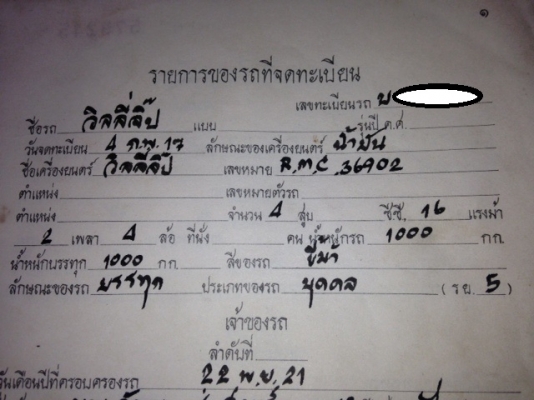 ๑
รายการของรถที่จดทะเบียน
เลขทะเบียนรถ บ
ชื่อรถ วิลลี่จี๊ป แบบ รุ่นปี ค.ศ.
วันจดทะเบียน 4 ก.พ. 17 ลักษณะของเครื่องยนตร์ น้ำมัน
ชื่อเครื่องยนตร์ วิลลี่จี๊ป เลขหมาย R.M.C. 36902
ตำแหน่ง เลขหมายตัวรถ
ตำแหน่ง จำนวน 4 สูบ ซีซี. 16 แรงม้า
2 เพลา 4 ล้อ ที่นั่ง คน น้ำหนักรถ 1000 กก.
น้ำหนักบรรทุก 1000 กก. สีของรถ ขี้ม้า
ลักษณะของรถ บรรทุก ประเภทของรถ บุคคล (รย. 5)
เจ้าของรถ
ลำดับที่
วันเดือนปีที่ครอบครองรถ 22 พ.ย. 21